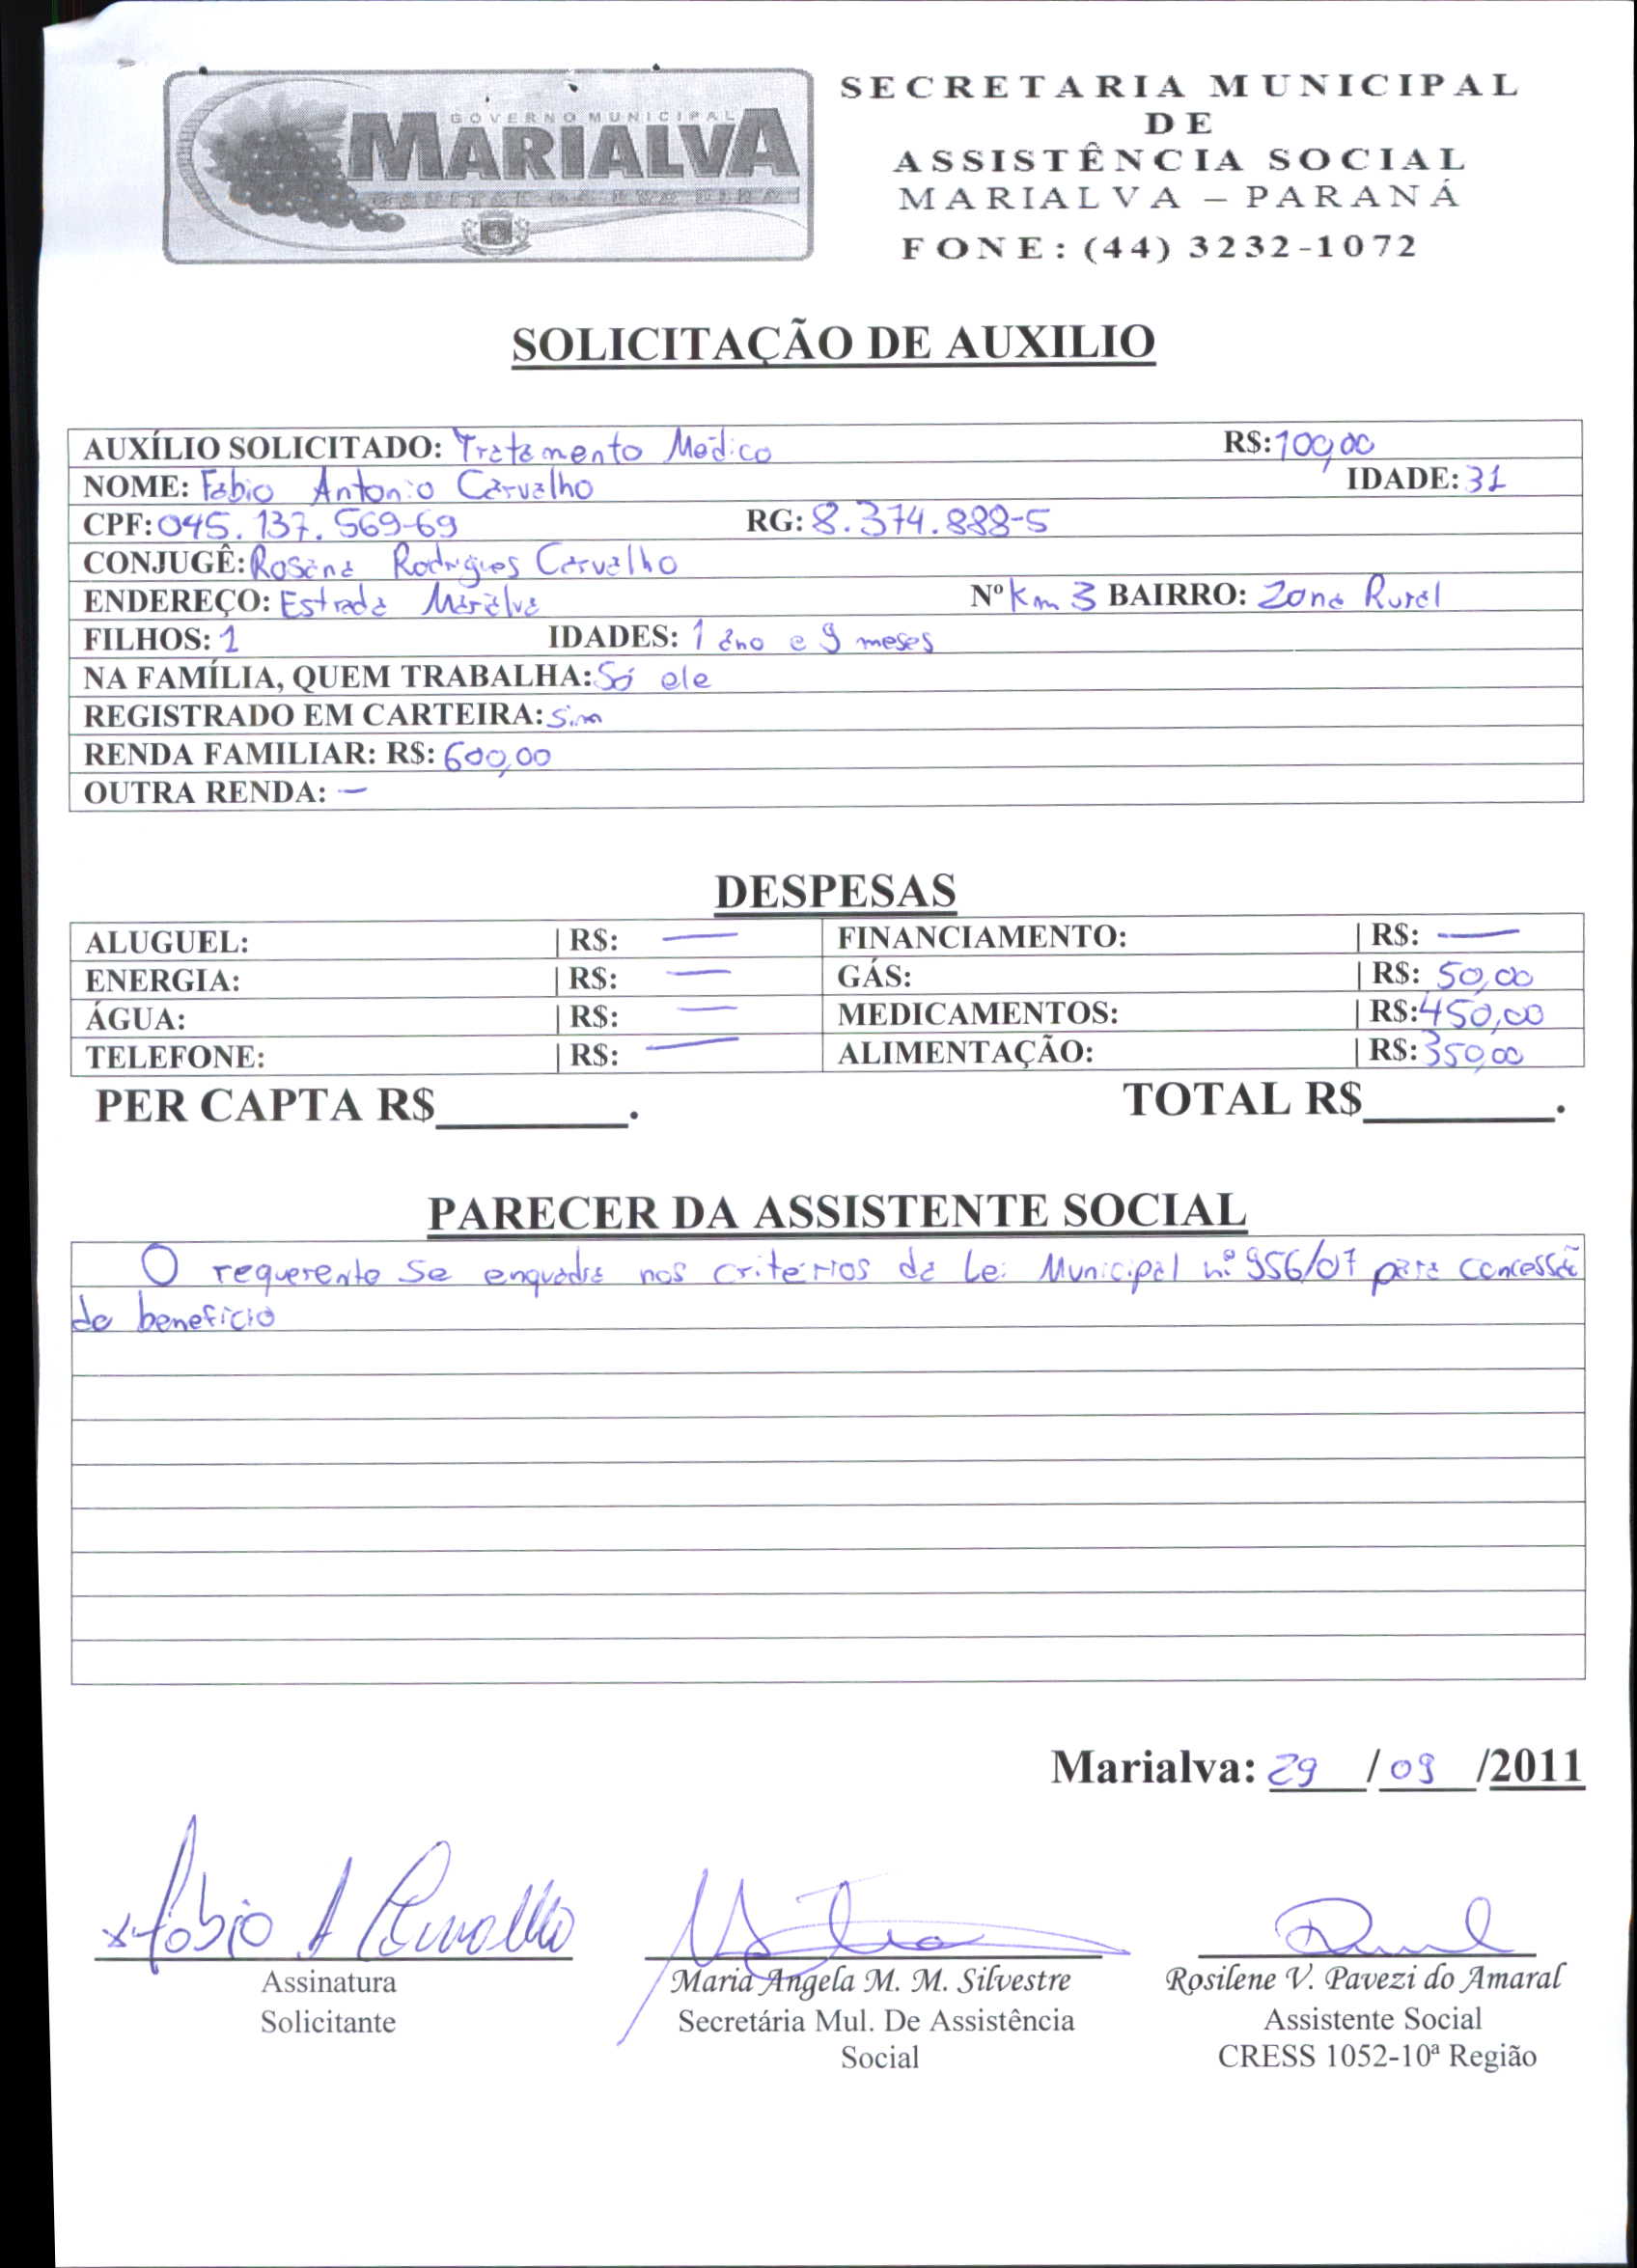 GOVERNO MUNICIPAL
MARIALVA
CAPITAL DA UVA FINA
SECRETARIA MUNICIPAL
DE
ASSISTÊNCIA SOCIAL
MARIALVA – PARANÁ
FONE: (44) 3232-1072
SOLICITAÇÃO DE AUXILIO
AUXÍLIO SOLICITADO: Tratamento Médico R$: 100,00
NOME: Fabio Antonio Carvalho IDADE: 31
CPF: 045.137.569-69 RG: 8.374.888-5
CONJUGÊ: Rosana Rodrigues Carvalho
ENDEREÇO: Estrada Marialva Nº Km 3 BAIRRO: Zona Rural
FILHOS: 1 IDADES: 1 ano e 9 meses
NA FAMÍLIA, QUEM TRABALHA: Só ele
REGISTRADO EM CARTEIRA: Sim
RENDA FAMILIAR: R$: 600,00
OUTRA RENDA: —
DESPESAS
ALUGUEL: | R$: — FINANCIAMENTO: | R$: —
ENERGIA: | R$: — GÁS: | R$: 50,00
ÁGUA: | R$: — MEDICAMENTOS: | R$: 450,00
TELEFONE: | R$: — ALIMENTAÇÃO: | R$: 350,00
PER CAPTA R$________. TOTAL R$________.
PARECER DA ASSISTENTE SOCIAL
O requerente se enquadra nos critérios da Lei Municipal n.º 956/07 para concessão
do benefício
Marialva: 29 / 09 /2011
x Fabio A Carvalho
Assinatura
Solicitante
Maria Angela M. M. Silvestre
Secretária Mul. De Assistência
Social
Rosilene V. Pavezi do Amaral
Assistente Social
CRESS 1052-10ª Região